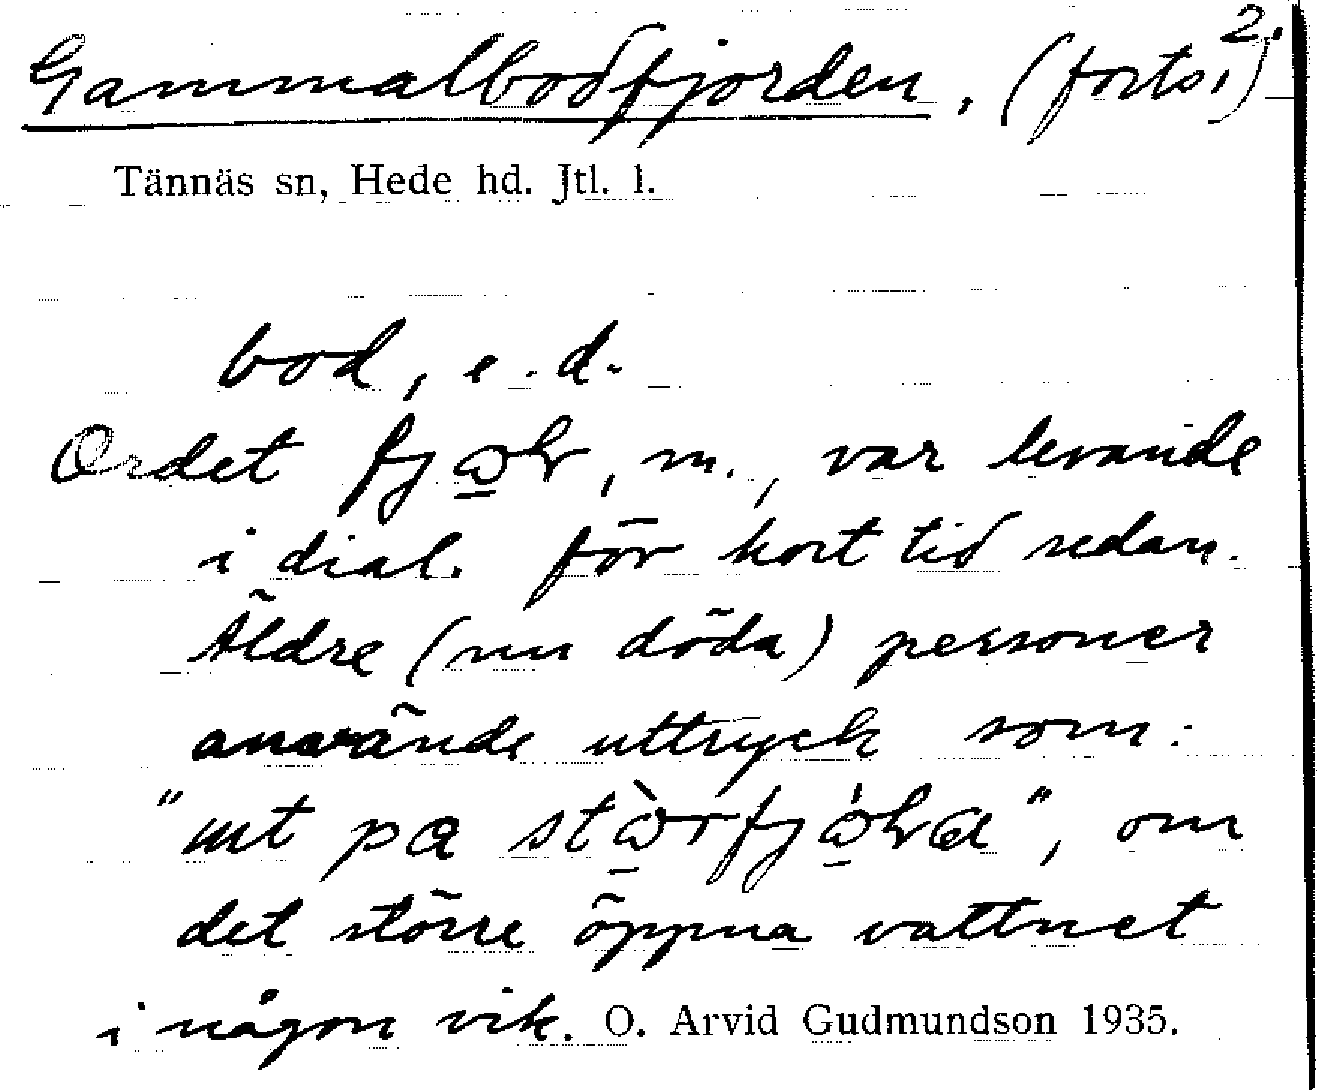 2.
Gammalbodfjorden, (forts.)
Tännäs sn, Hede hd. Jtl. l.
bod, e. d.
Ordet , m., var levande
i dial. för kort tid sedan.
Äldre (nu döda) personer
använde uttryck som:
"ut pa ", om
det större öppna vattnet
i någon vik. O. Arvid Gudmundson 1935.